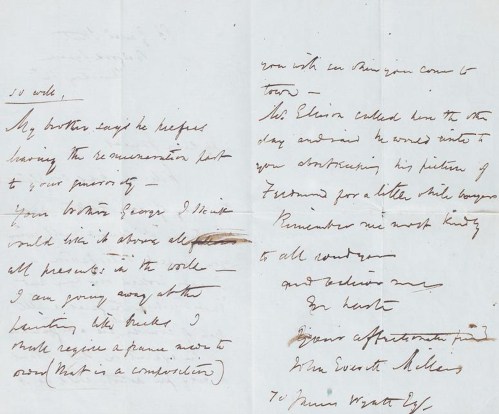 so well,
My brother says he prefers
leaving the remuneration part
to your generosity —
Your brother George I think
would like it above all
all presents in the world —
I am going away at the
painting like bricks I
shall require a frame made to
order (that is a composition)
you will see when you come to
town —
Mr Ellison called here the other
day and said he would write to
you about keeping his picture of
Ferdinand for a little while longer
Remember me most kindly
to all round you
and believe me
In haste
Yours affectionate friend
John Everett Millais
To James Wyatt Esq.